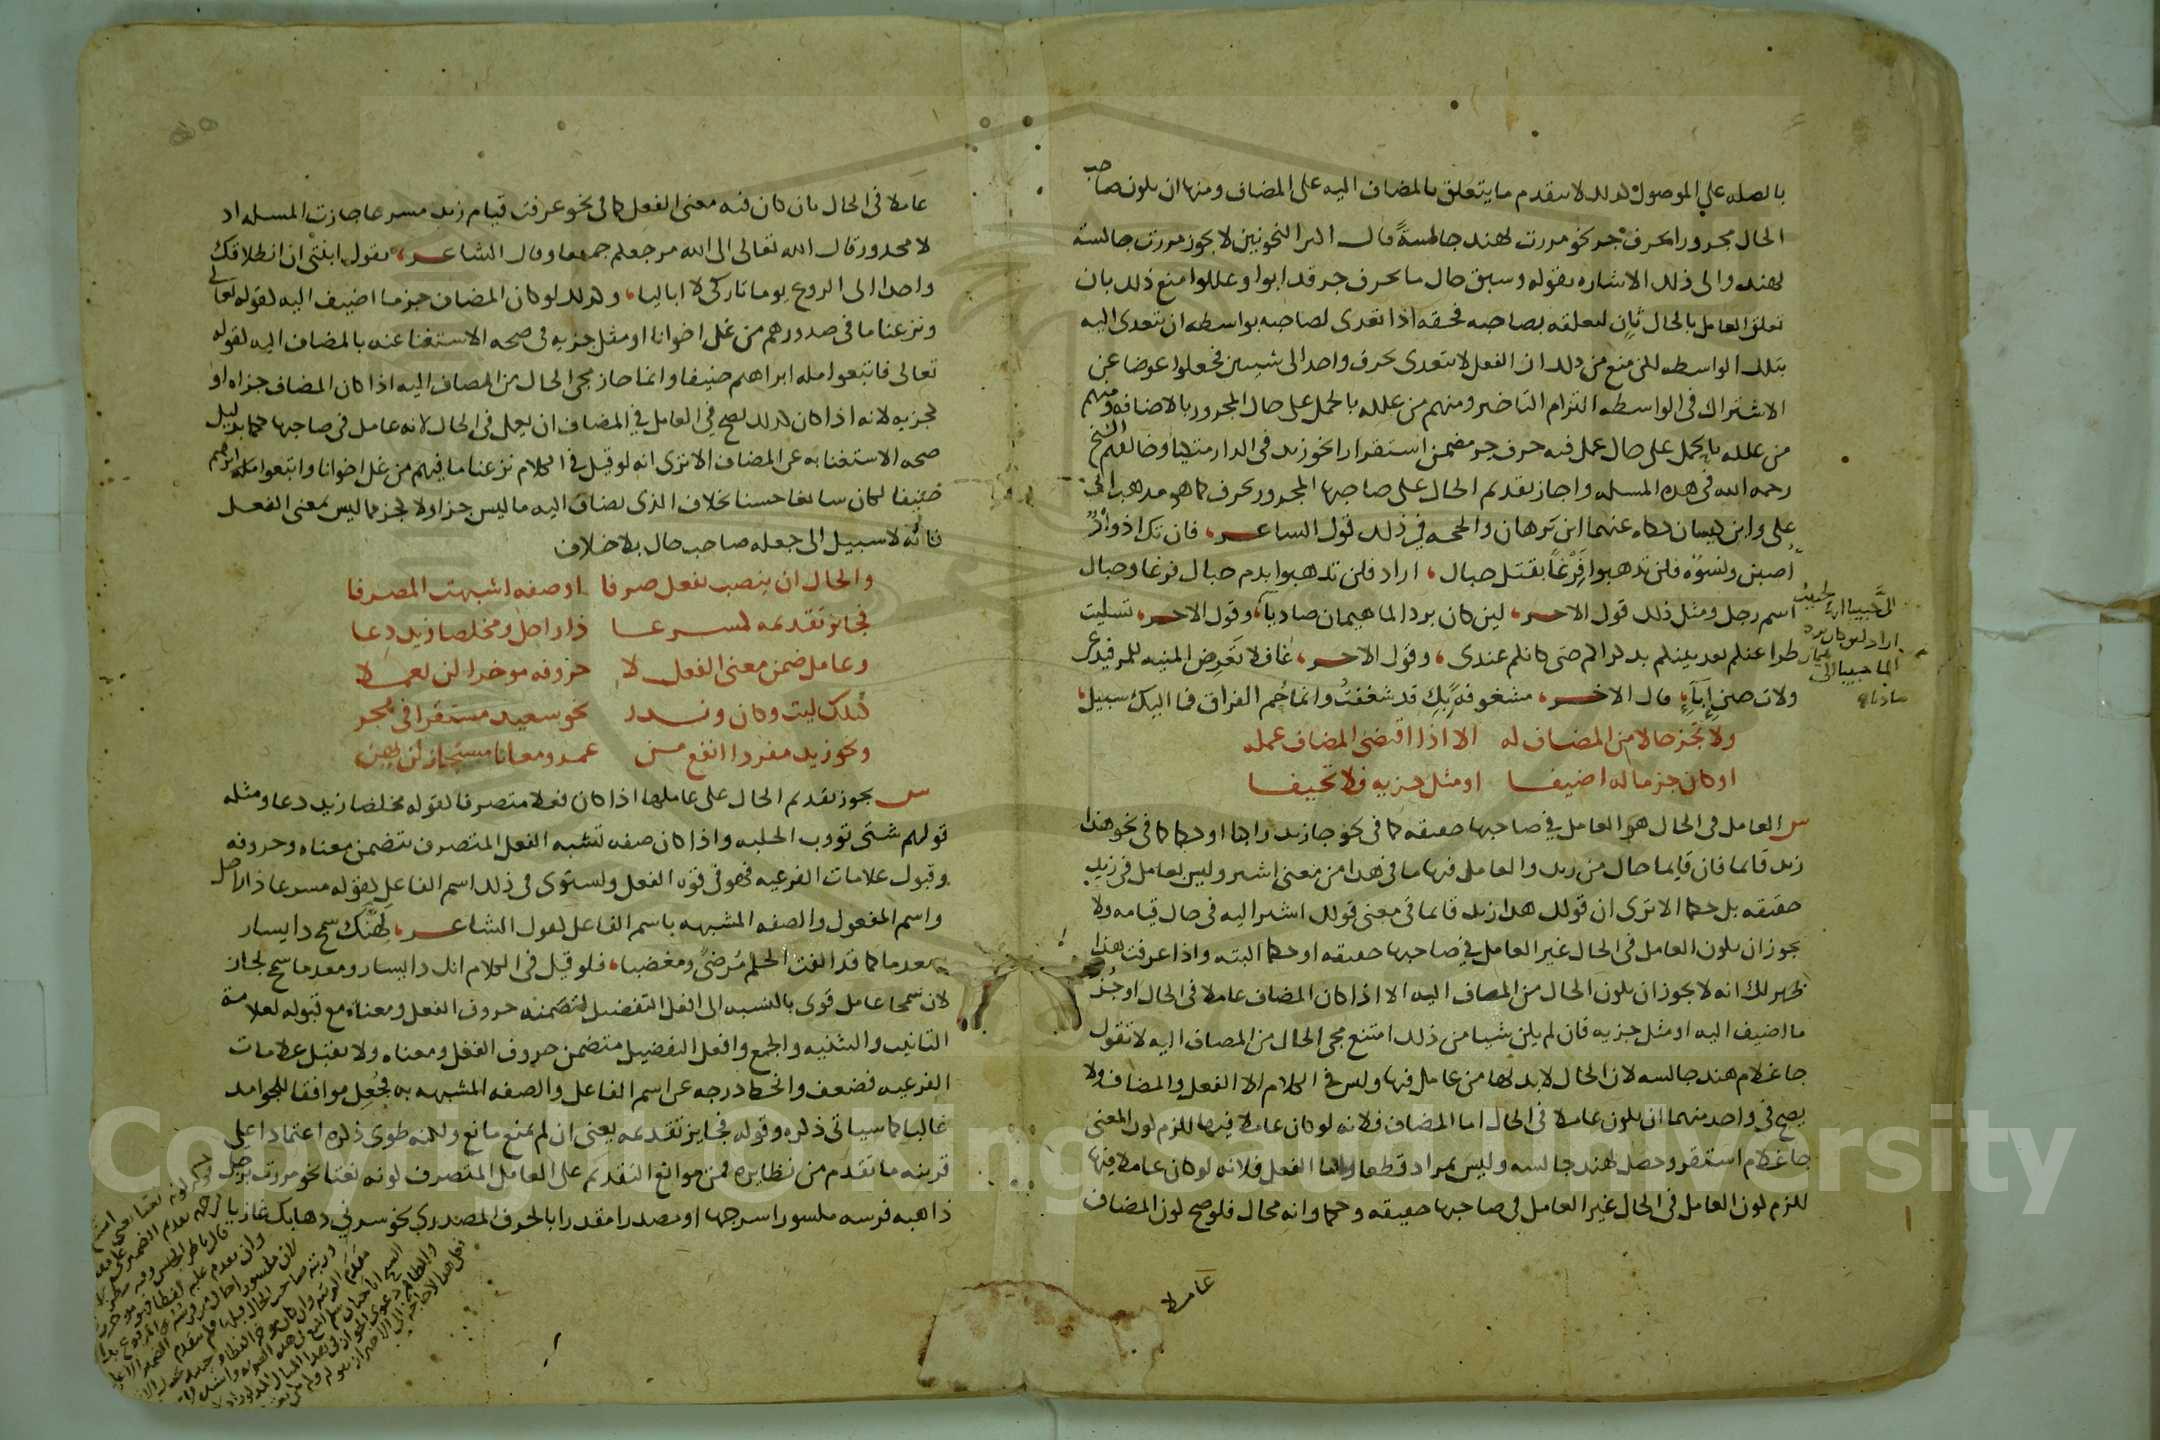 بالصله على الموصول كذلك لا يتقدم ما يتعلق بالمضاف اليه على المضاف ومنها ان يكون صاحب
الحال مجرورا بحرف جر نحو مررت بهند جالسةً قال اكثر النحويين لا يجوز مررت جالسة
بهند والى ذلك الاشاره بقوله وسبق حال ما بحرف جر قد ابوا وعللوا منع ذلك بان
تعلق العامل بالحال ثانٍ لتعلقه بصاحبه فحقه اذا تعدى لصاحبه بواسطه ان يتعدى اليه
بتلك الواسطه لكن منع من ذلك ان الفعل لا يتعدى بحرف واحد الى شيين فجعلوا عوضا عن
الاشتراك في الواسطه التزام التاخير ومنهم من علله بالحمل على حال المجرور بالاضافه ومنهم
من علله بالحمل على حال عمل فيه حرف جر مضمن استقرارا نحو زيد في الدار متكيا وخالفهم الشيخ
رحمه الله في هذه المسله واجاز تقديم الحال على صاحبها المجرور بحرف كما هو مذهب ابي
على وابن كيسان حكاه عنهما ابن برهان والحجه في ذلك قول الشاعر فان تك اذواد
اصبن ونسوة فلن تذهبوا فرغاً بقتل حبال اراد فلن تذهبوا بدم حبال فرغا وحبال
اسم رجل ومثل ذلك قول الاخر لين كان برد الما هيمان صادياً وقول الاخر تسليت
طرا عنكم بعد بينكم بذكراكم حتى كانكم عندى وقول الاخر غافلا تعرض المنيه للمر فيدعى
ولات حين إباء قال الاخر مشغوفةً بك قد شغفت وانما حُم الفراق فما اليك سبيل
ولا تجز حالا من المضاف له الا اذا اقتضى المضاف عمله
او كان جز ما له اضيفا او مثل جزيه فلا تحيفا
س العامل في الحال هو العامل في صاحبها حقيقه كما في نحو جا زيد راكبا او حكما كما في نحو هذا
زيد قايما فان قايما حال من زيد والعامل فيها ما في هذا من معنى اشير وليس بعامل في زيد
حقيقه بل حكما الا ترى ان قولك هذا زيد قايما في معنى قولك اشير اليه في حال قيامه ولا
يجوز ان يكون العامل في الحال غير العامل في صاحبها حقيقه او حكما البته واذا عرفت هذا
ظهر لك انه لا يجوز ان يكون الحال من المضاف اليه الا اذا كان المضاف عاملا في الحال او جُزْ
ما اضيف اليه او مثل جزيه فان لم يكن شيا من ذلك امتنع مجى الحال من المضاف اليه لا تقول
جا غلام هند جالسه لان الحال لا بد لها من عامل فيها وليس في الكلام الا الفعل والمضاف ولا
يصح في واحد منهما ان يكون عاملا في الحال اما المضاف فلانه لو كان عاملا فيها للزم كون المعنى
جا غلام استقر وحصل لهند جالسه وليس بمراد قطعا واما الفعل فلانه لو كان عاملا فيها
للزم كون العامل في الحال غير العامل في صاحبها حقيقه وحكما وانه محال فلو صح كون المضاف
عاملا
اراد لين كان برد
الما حبيبا الى
عاملا في الحال بان كان فيه معنى الفعل كما في نحو عرفت قيام زيد مسرعا جازت المسله اذ
لا محذور قال الله تعالى الى الله مرجعكم جميعا وقال الشاعر تقول ابنتى ان انطلاقك
واحدا الى الروع يوما تاركى لا اباليا وكذلك لو كان المضاف جز ما اضيف اليه كقوله تعالى
ونزعنا ما في صدورهم من غل اخوانا او مثل جزيه في صحه الاستغنا عنه بالمضاف اليه كقوله
تعالى فاتبعوا مله ابراهيم حنيفا وانما جاز مجى الحال من المضاف اليه اذا كان المضاف جزاه او
كجزيه لانه اذا كان كذلك يصح في العامل في المضاف ان يعمل في الحال لانه عامل في صاحبها حكما بدليل
صحه الاستغنا به عن المضاف الا ترى انه لو قيل في الكلام نزعنا ما فيهم من غل اخوانا واتبعوا ابراهيم
حنيفا لكان سايغا حسنا بخلاف الذى يضاف اليه ما ليس جزا ولا كجز مما ليس بمعنى الفعل
فانه لا سبيل الى جعله صاحب حال بلا خلاف
والحال ان ينصب بفعل صرفا او صفه اشبهت المصرفا
فجايز تقديمه كمسرعا ذا راحل ومخلصا زيد دعا
وعامل ضمن معنى الفعل لا حروفه موخرا لن يعملا
كتلك ليت وكان وندر نحو سعيد مستقرا في هجر
ونحو زيد مفردا انفع من عمرو معانا مستجاز لن يهن
س يجوز تقديم الحال على عاملها اذا كان فعلا متصرفا كقوله مخلصا زيد دعا ومثله
قولهم شتى تووب الحلبه واذا كان صفه تشبه الفعل المتصرف بتضمن معناه وحروفه
وقبول علامات الفرعيه فهو في قوه الفعل ويستوى في ذلك اسم الفاعل كقوله مسرعا ذا راحل
واسم المفعول والصفه المشبهه باسم الفاعل كقول الشاعر لهنّك سمح ذا يسار
ومعدما كما قد الفت الحلم مُرضىً ومغضبا فلو قيل في الكلام انك ذا يسار ومعدما سمح لجاز
لان سمحا عامل قوى بالنسبه الى افعل التفضيل لتضمنه حروف الفعل ومعناه مع قبوله لعلامه
التانيث والتثنيه والجمع وافعل التفضيل متضمن حروف الفعل ومعناه ولا يقبل علامات
الفرعيه فضعف وانحط درجه عن اسم الفاعل والصفه المشبهه به فجُعِل موافقا للجوامد
غالبا كما سياتى ذكره وقوله فجايز تقديمه يعنى ان لم يمنع مانع ولكنه طوى ذكره اعتمادا على
قرينه ما تقدم من نظايره فمن موانع التقديم على العامل المتصرف كونه نعتا نحو مررت برجل
ذاهبه فرسه مكسورا سرجها او مصدرا مقدرا بالحرف المصدرى نحو سرنى ذهابك غازيا
Copyright © King Saud University